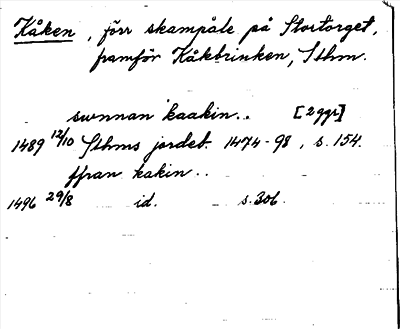 Kåken, förr skampåle på Stortorget,
framför Kåkbrinken, Sthm.
sunnan kaakin.. [2 ggr]
1489 12/10 Sthms jordeb. 1474-98, s. 154.
ffran kakin..
1496 29/8 id. s. 306.